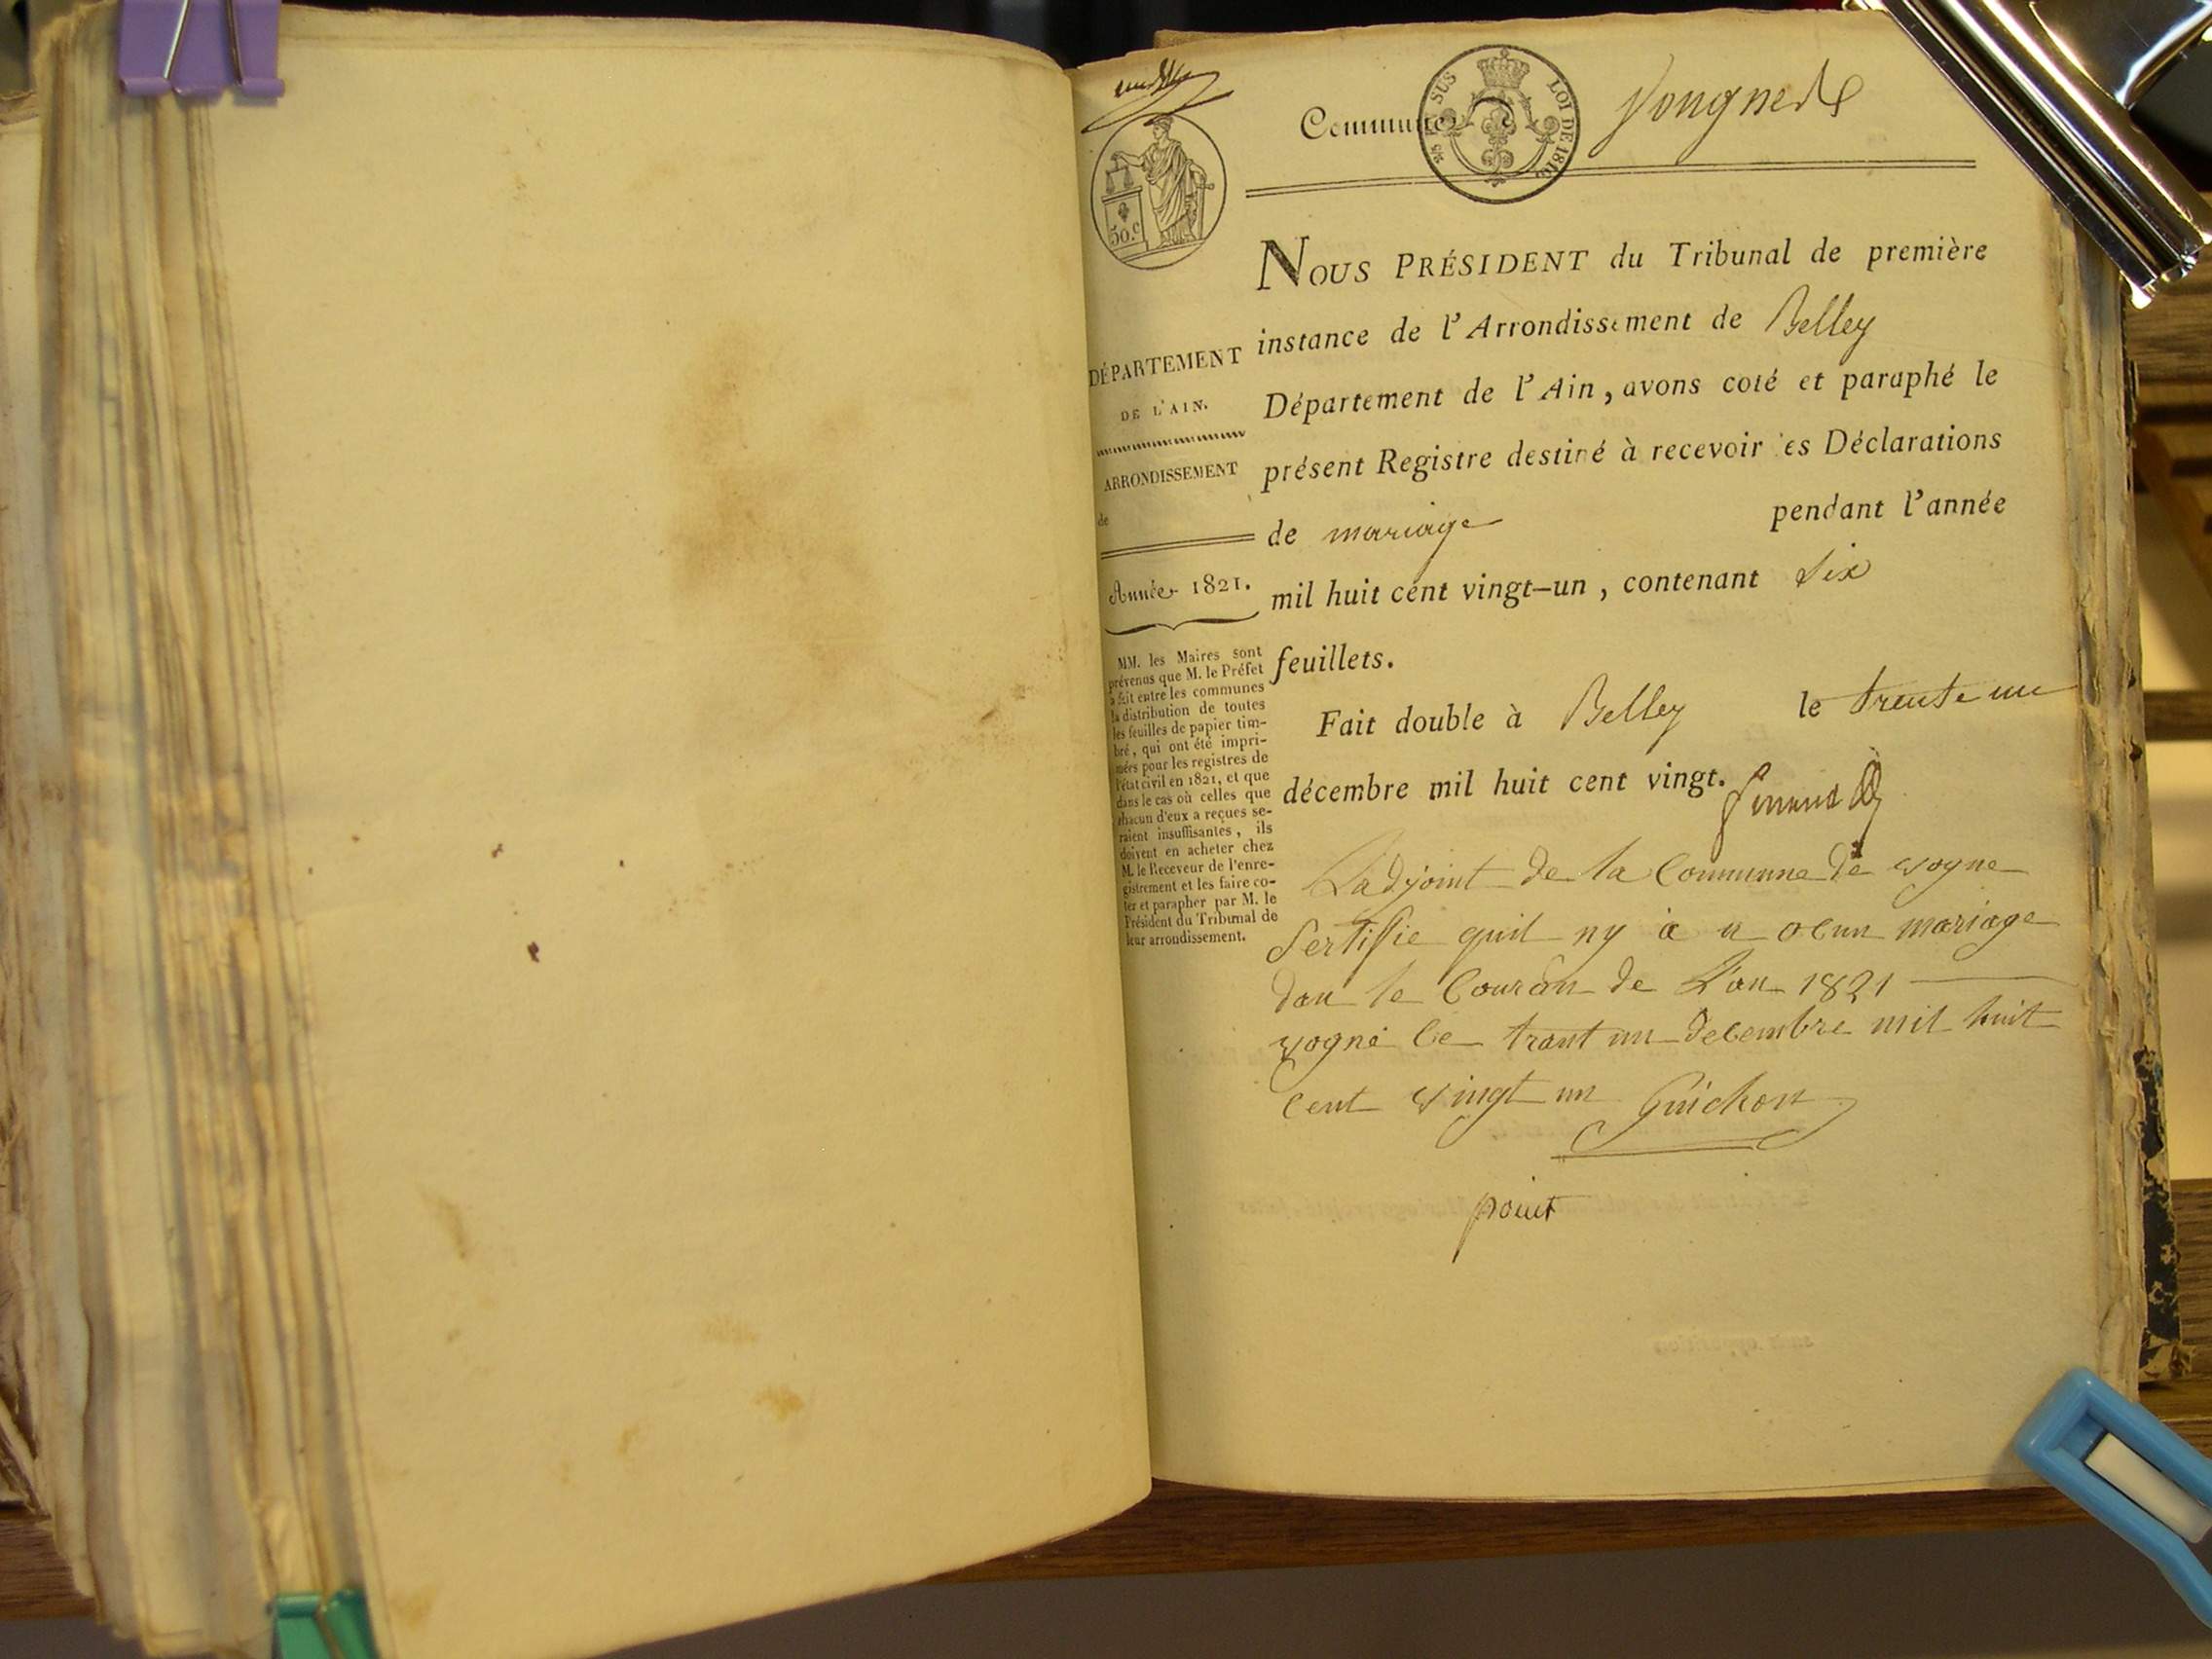 Commune
Vongnes
SUS
LOI DE 1816
50.c
NOUS PRÉSIDENT du Tribunal de première
instance de l'Arrondissement de Belley
Département de l'Ain, avons coté et paraphé le
présent Registre destiné à recevoir les Déclarations
de mariage pendant l'année
mil huit cent vingt-un, contenant six
feuillets.
Fait double à Belley le trente un
décembre mil huit cent vingt.
DÉPARTEMENT
DE L'AIN.
ARRONDISSEMENT
de
Année 1821.
MM. les Maires sont
prévenus que M. le Préfet
a fait entre les communes
la distribution de toutes
les feuilles de papier tim-
bré, qui ont été impri-
mées pour les registres de
l'état civil en 1821, et que
dans le cas où celles que
chacun d'eux a reçues se-
raient insuffisantes, ils
doivent en acheter chez
M. le Receveur de l'enre-
gistrement et les faire co-
ter et parapher par M. le
Président du Tribunal de
leur arrondissement.
Ladjoint de la Commune de vogne
Sertifie quil ny à u ocun mariage
dan le Couran de L'an 1821
vogne Ce trant un decembre mil huit
cent vingt un Guichon
point